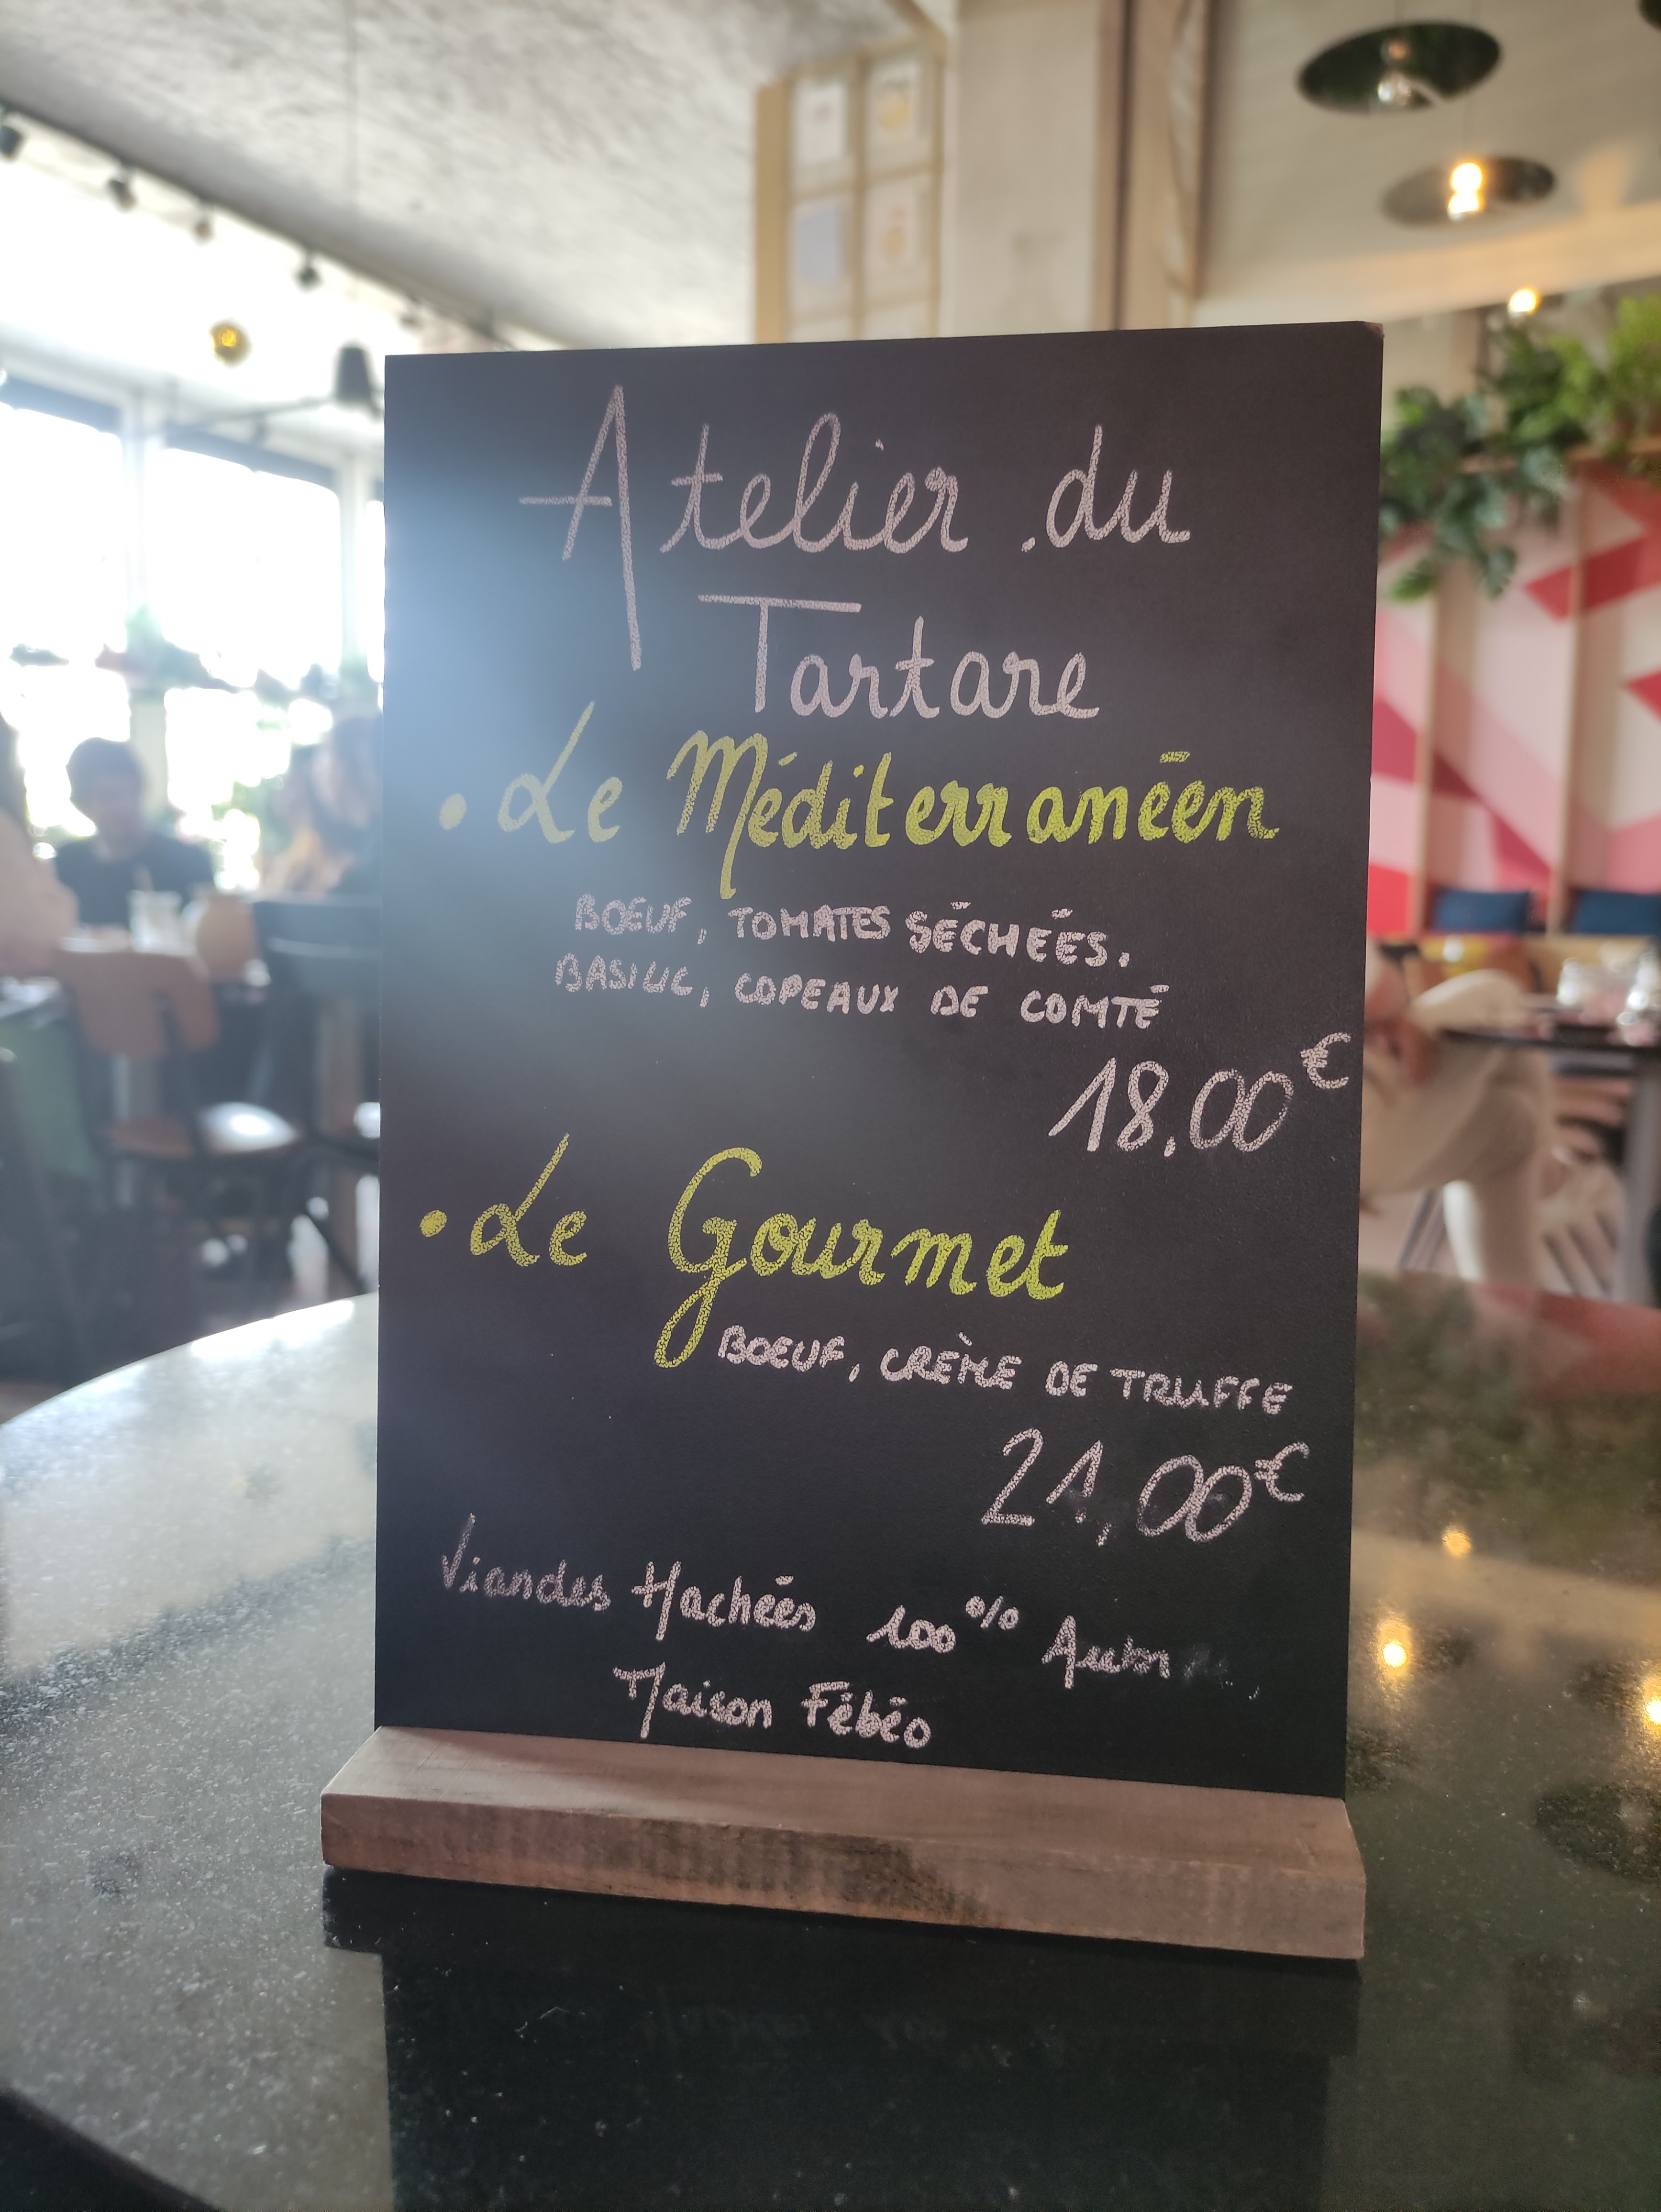 Atelier du
Tartare
• Le Méditerranéen
BOEUF, TOMATES SÉCHÉES.
BASILIC, COPEAUX DE COMTÉ
18,00€
• Le Gourmet
BOEUF, CRÈME DE TRUFFE
21,00€
Viandes Hachées 100%
Maison Fébéo